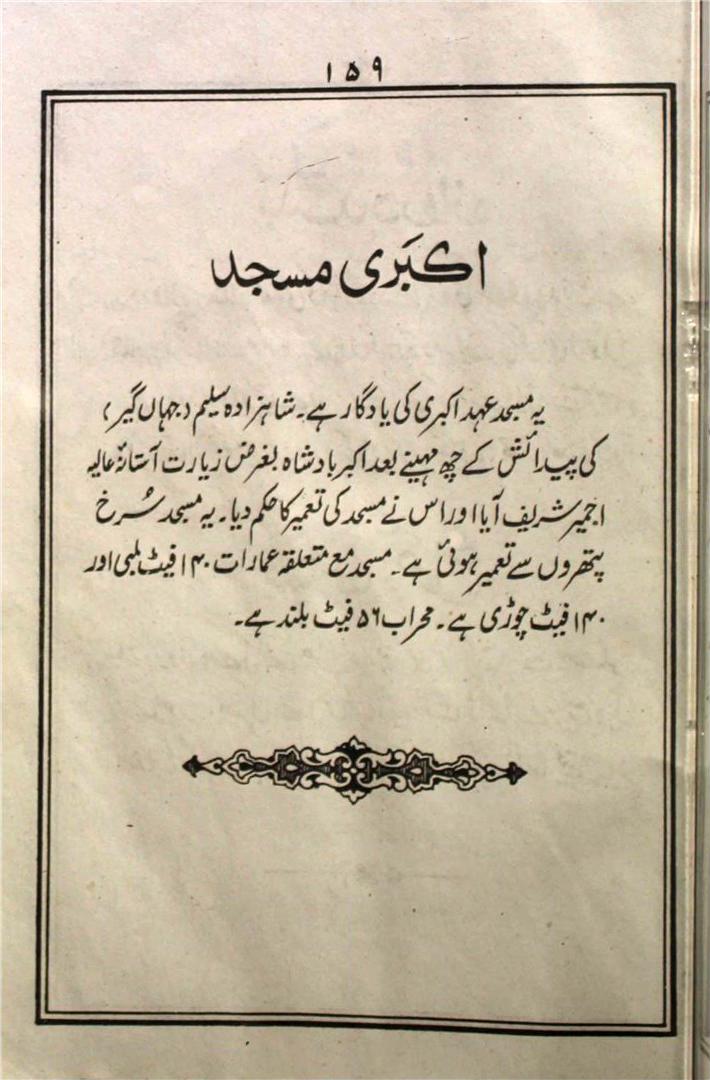 ۱۵۹
اکبَری مسجد
یہ مسجد عہد اکبری کی یادگار ہے۔ شاہزادہ سلیم (جہاں گیر)
کی پیدائش کے چھ مہینے بعد اکبر بادشاہ بغرض زیارت آستانۂ عالیہ
اجمیر شریف آیا اور اس نے مسجد کی تعمیر کا حکم دیا۔ یہ مسجد سُرخ
پتھروں سے تعمیر ہوئی ہے۔ مسجد مع متعلقہ عمارات ۱۴۰ فیٹ لمبی اور
۱۴۰ فیٹ چوڑی ہے۔ محراب ۵۶ فیٹ بلند ہے۔